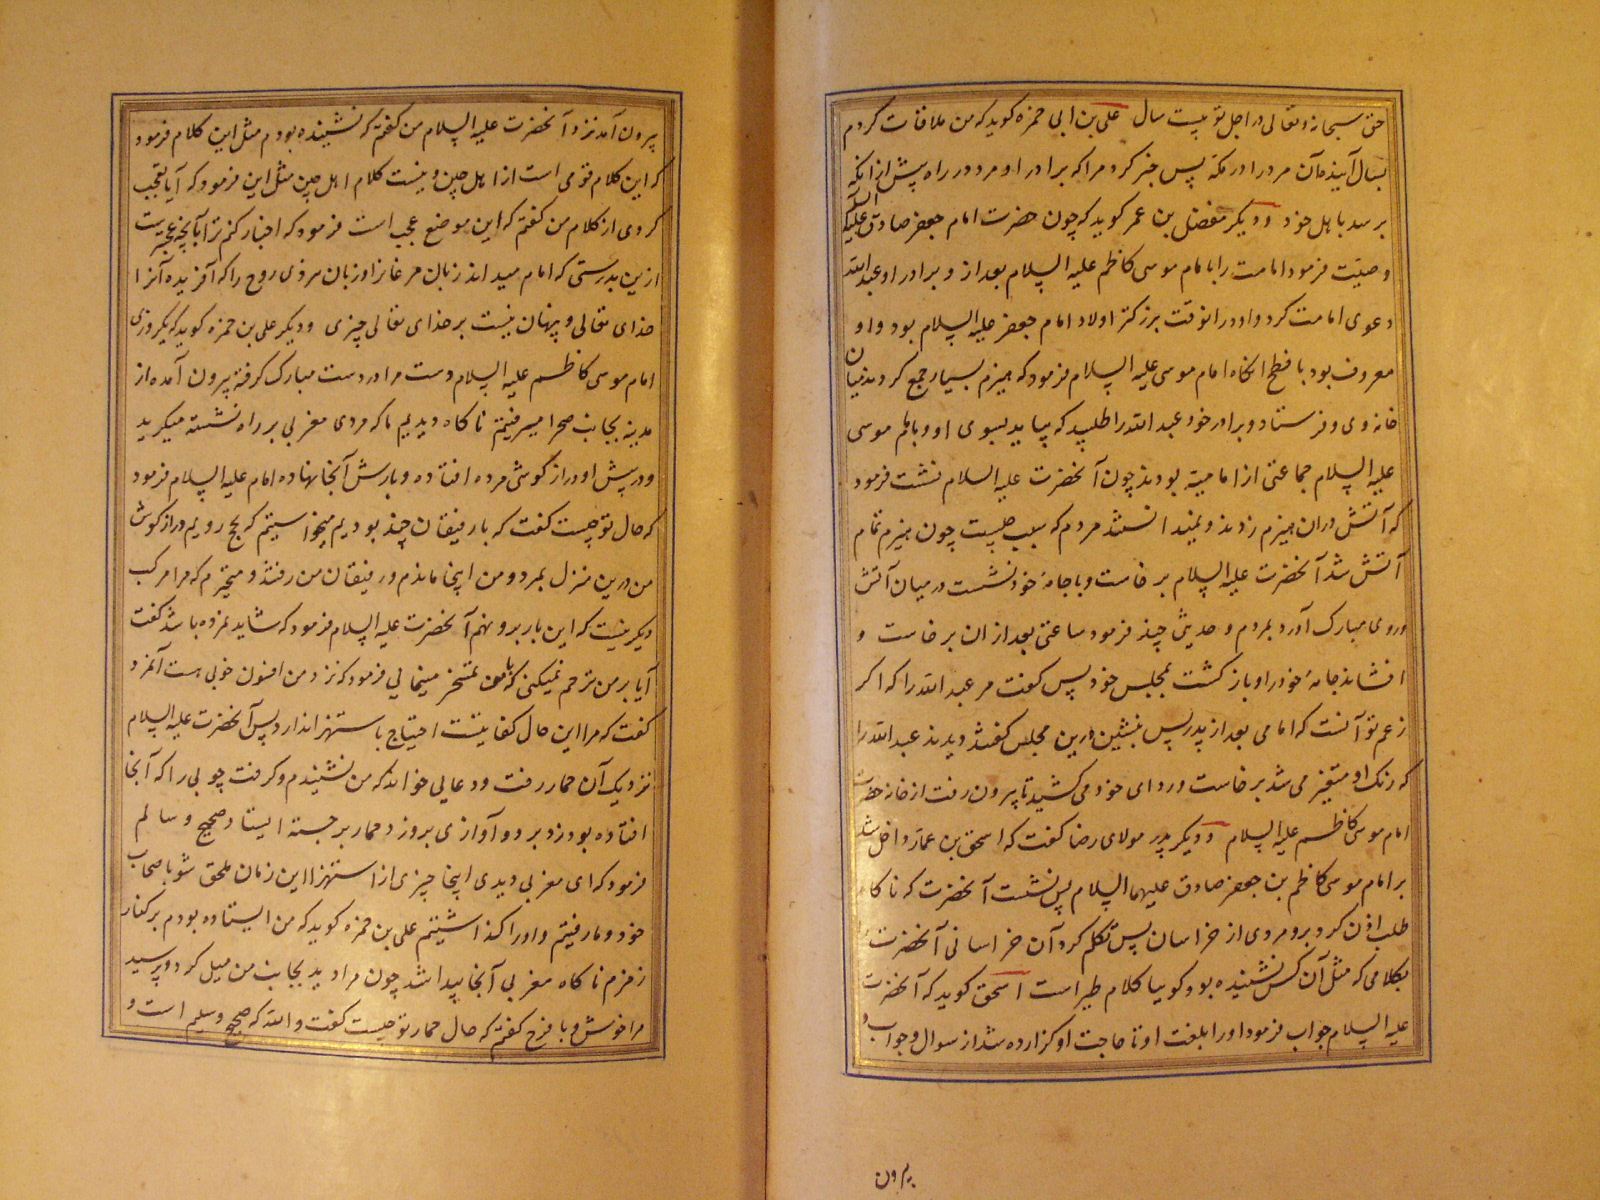 حق سبحانه و تعالی در اجل تو بیست سال علی بن ابی حمزه کوید که من ملاقات کردم
بسال آینده آن مرد را در مکه پس خبر کرد مرا که برادر او مرد در راه پیش از انکه
برسد باهل خود و دیکر مفضل بن عمر کوید که چون حضرت امام جعفر صادق علیه السلام
وصیت فرمود امامت را بامام موسی کاظم علیه السلام بعد از و برادر او عبد الله
دعوی امامت کرد و او در انوقت بزرکتر اولاد امام جعفر علیه السلام بود و او
معروف بود با فطح انکاه امام موسی علیه السلام فرمود که هیزم بسیار جمع کردند میان
خانه وی و فرستاد و برادر خود عبد الله را طلبید که بیاید بسوی او و با امام موسی
علیه السلام جماعتی از امامیه بودند چون آنحضرت علیه السلام نشست فرمود
که آتش در ان هیزم زدند و نمیدانستند مردم که سبب چیست چون هیزم تمام
آتش شد آنحضرت علیه السلام برخاست و با جامه خود نشست در میان آتش
و روی مبارک آورد بمردم و حدیثی چند فرمود ساعتی بعد از ان برخاست و
افشاند جامه خود را و باز کشت بمجلس خود پس کفت مر عبد الله را که اکر
زعم تو آنست که امامی بعد از پدر پس بنشین درین مجلس کفتند دیدند عبد الله را
که رنک او متغیر می شد برخاست و ردای خود می کشید تا بیرون رفت از خانه حضرت
امام موسی کاظم علیه السلام و دیکر بدر مولای رضا کفت که اسحق بن عمار داخل شد
بر امام موسی کاظم بن جعفر صادق علیهما السلام پس نشست آنحضرت که ناکاه
طلب اذن کرد برو مردی از خراسان پس تکلم کرد آن خراسانی آنحضرت را
بکلامی که مثل آن کس نشنیده بود کوییا کلام طیر است اسحق کوید که آنحضرت
علیه السلام جواب فرمود او را بلغت او تا حاجت او کزارده شد از سوال و جواب و
بیرون
بیرون آمد نزد آنحضرت علیه السلام من کفتم که نشنیده بودم مثل این کلام فرمود
که این کلام قومی است از اهل چین و نیست کلام اهل چین مثل این فرمود که آیا تعجب
کردی از کلام من کفتم که این موضع عجب است فرمود که اخبار کنم ترا بآنچه عجیب تر است
ازین بدرستی که امام میداند زبان مرغانرا و زبان هر ذی روح را که آفریده آنرا
خدای تعالی و پنهان نیست بر خدای تعالی چیزی و دیکر علی بن حمزه کوید که یکروزی
امام موسی کاظم علیه السلام دست مرا در دست مبارک کرفته بیرون آمده از
مدینه بجانب صحرا میرفتیم ناکاه دیدیم ما که مردی مغربی بر راه نشسته میکرید
و در پیش او دراز کوشی مرده افتاده و بارش آنجا نهاده امام علیه السلام فرمود
که حال تو چیست کفت که با رفیقان چند بودیم میخواستیم که بحج رویم دراز کوش
من درین منزل بمرد و من اینجا ماندم و رفیقان من رفتند و متحیرم که مرا مرکب
دیکر نیست که این بار برو نهم آنحضرت علیه السلام فرمود که شاید نمرده باشد کفت
آیا بر من ترحم نمیکنی که با من تمسخر مینمایی فرمود که نزد من افسون خوبی هست آنمرد
کفت که مرا این حال کفایتست احتیاج باستهزا ندارد پس آنحضرت علیه السلام
نزدیک آن حمار رفت و دعایی خواند که من نشنیدم و کرفت چوبی را که آنجا
افتاده بود زد برو و آوازی برو زد حمار برجسته ایستاد صحیح و سالم
فرمود که ای مغربی دیدی اینجا چیزی از استهزا این زمان ملحق شو باصحاب
خود و ما رفتیم و او را کذاشتیم علی بن حمزه کوید که من ایستاده بودم بر کنار
زمزم ناکاه مغربی آنجا پیدا شد چون مرا دید بجانب من میل کرد و پرسید
مرا خوش و با فرح کفتم که حال حمار تو چیست کفت و الله که صحیح و سلیم است و